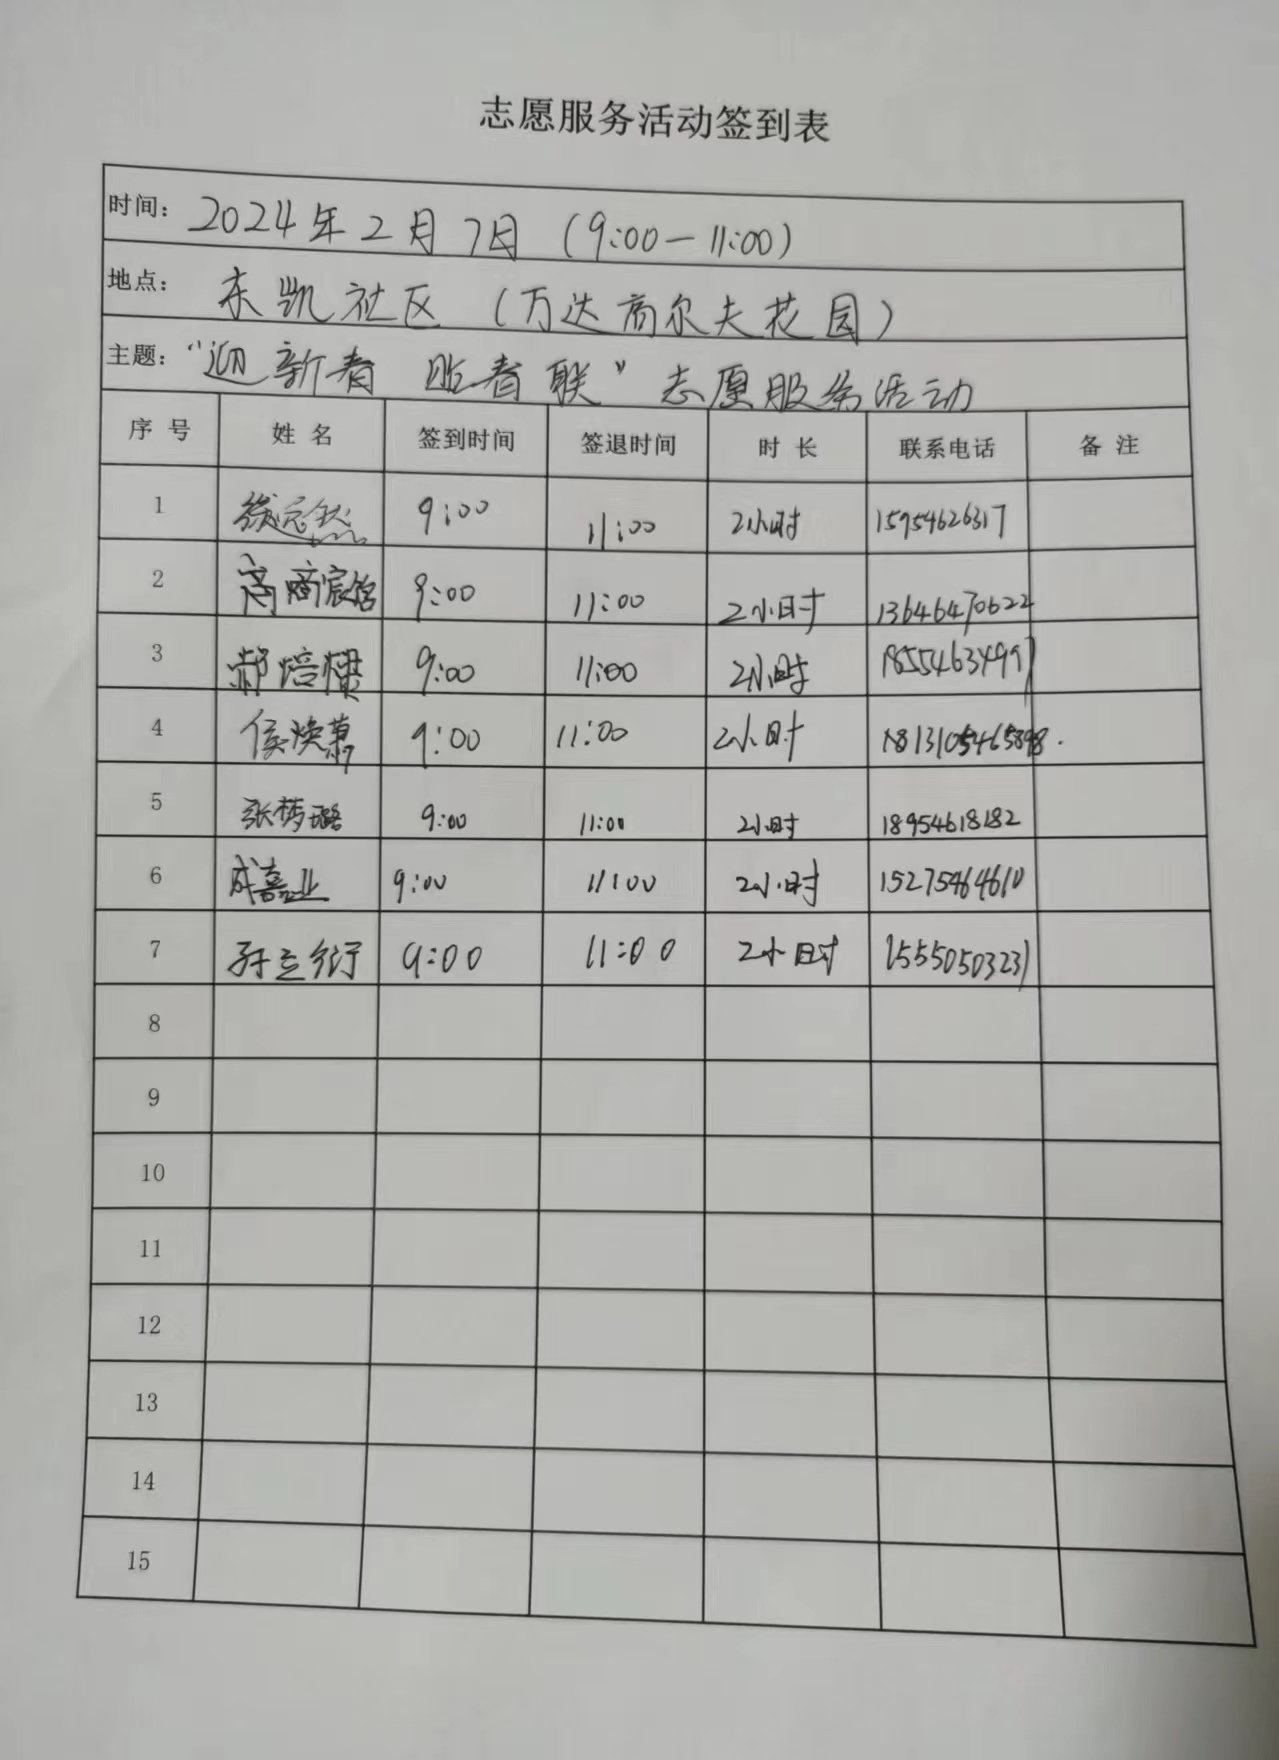 志愿服务活动签到表
时间: 2024年2月7日 (9:00-11:00)
地点: 东凯社区 (万达高尔夫花园)
主题: "迎新春 贴春联" 志愿服务活动
序号 姓名 签到时间 签退时间 时长 联系电话 备注
1 9:00 11:00 2小时 15954626317
2 9:00 11:00 2小时 13646470622
3 9:00 11:00 2小时 18554634997
4 侯焕萧 9:00 11:00 2小时
5 张梦璐 9:00 11:00 2小时 18954618182
6 成嘉业 9:00 11:00 2小时 15275464610
7 孙立衍 9:00 11:00 2小时 15550503231
8
9
10
11
12
13
14
15